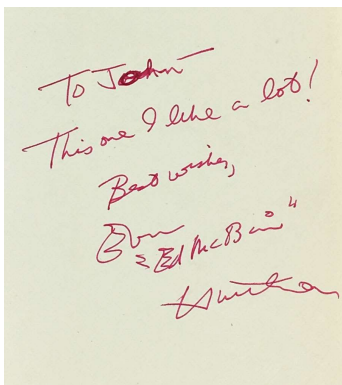 To John
This one I like a lot!
Best wishes,
Evan
"Ed McBain"
Hunter